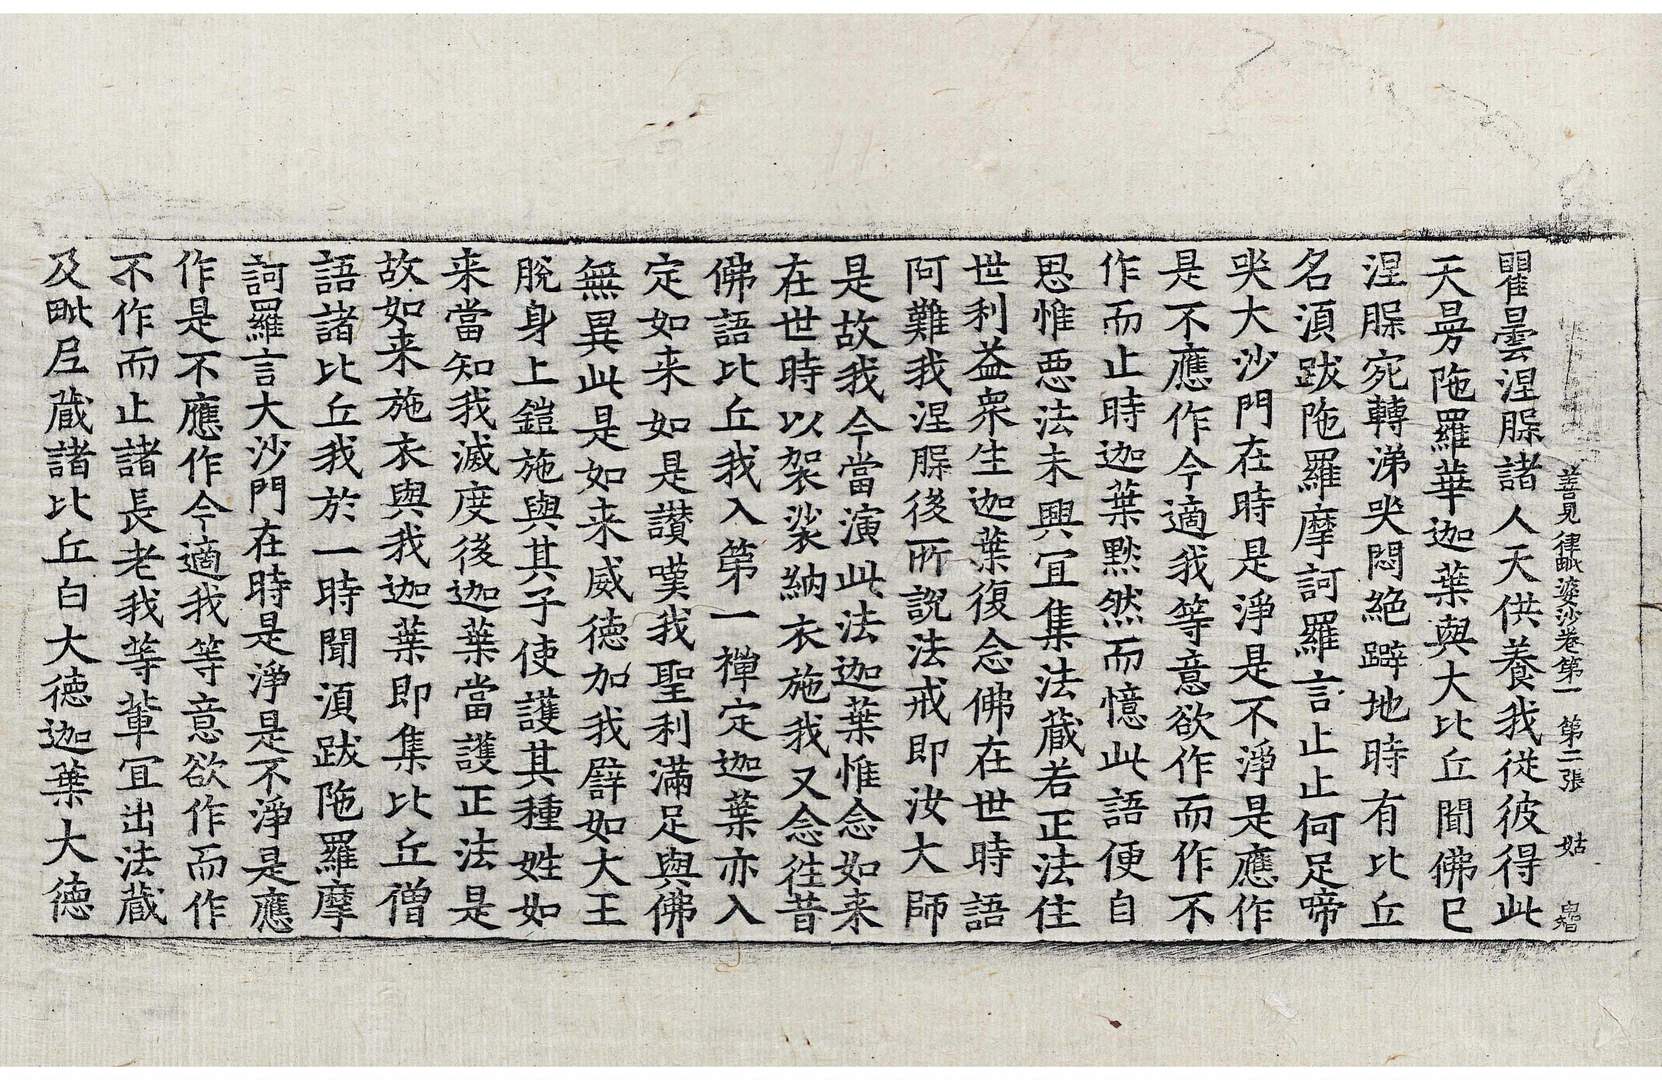 善見律毗婆沙卷第一 第二張 姑
瞿曇涅槃諸人天供養我從彼得此
天曼陁羅華迦葉與大比丘聞佛已
涅槃宛轉涕哭悶絕躃地時有比丘
名湏跋陁羅摩訶羅言止止何足啼
哭大沙門在時是淨是不淨是應作
是不應作今適我等意欲作而作不
作而止時迦葉默然而憶此語便自
思惟惡法未興冝集法藏若正法住
世利益衆生迦葉復念佛在世時語
阿難我涅槃後所說法戒即汝大師
是故我今當演此法迦葉惟念如来
在世時以袈裟納衣施我又念往昔
佛語比丘我入第一禪定迦葉亦入
定如来如是讃嘆我聖利滿足與佛
無異此是如来威德加我譬如大王
脫身上鎧施與其子使護其種姓如
来當知我滅度後迦葉當護正法是
故如来施衣與我迦葉即集比丘僧
語諸比丘我於一時聞湏跋陁羅摩
訶羅言大沙門在時是淨是不淨是應
作是不應作今適我等意欲作而作
不作而止諸長老我等輩冝出法藏
及毗尼藏諸比丘白大德迦葉大德